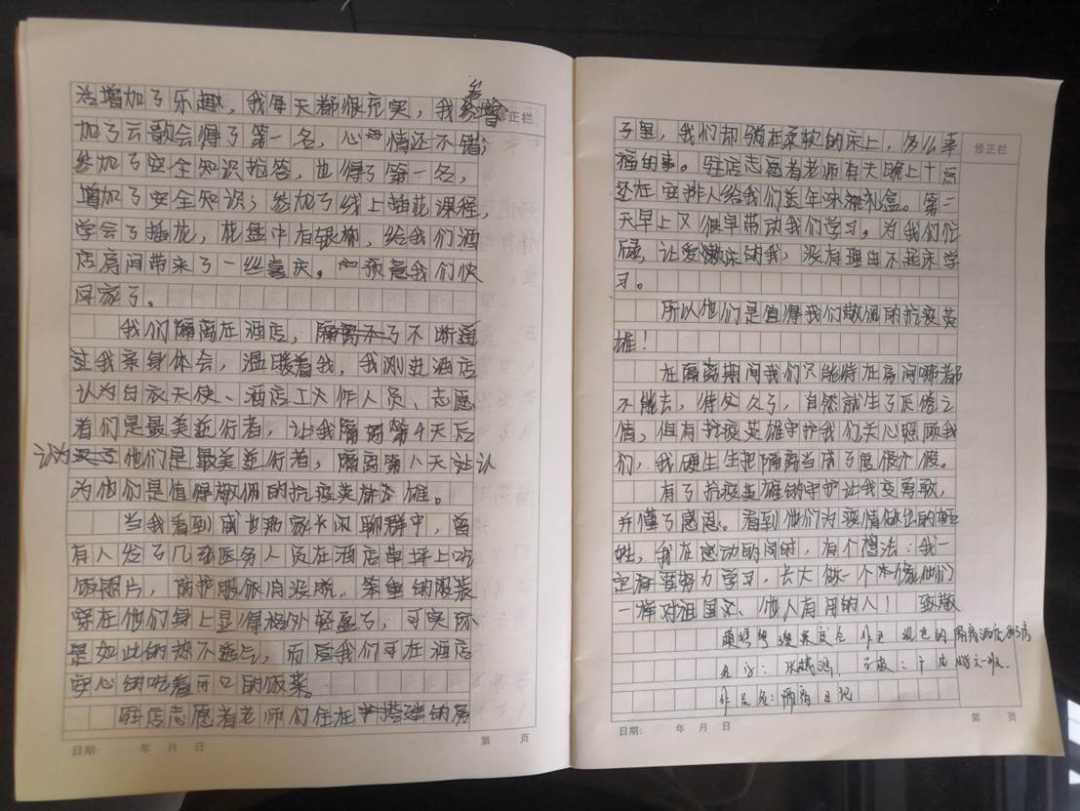 活增加了乐趣，我每天都很充实，我参
修正栏
加了云歌会得了第一名，心情还不错；
参加了安全知识抢答，也得了第一名，
增加了安全知识；参加了线上插花课程，
学会了插花，花盘中有银柳，给我们酒
店房间带来了一丝喜庆。预意我们快
回家了。
我们隔离在酒店，不断通
过我亲身体会，温暖着我，我刚进酒店
认为白衣天使、酒店工作人员、志愿
者们是最美逆行者，让我隔离第4天后
认为他们是最美逆行者，隔离第八天让认
为他们是值得敬佩的抗疫英雄。
当我看到家长闲聊群中，曾
有人发了几张医务人员在酒店草坪上吃
饭照片，防护服依旧没脱，笨重的服装
穿在他们身上显得格外轻盈了，可实际
是如此的热不透气，而是我们可在酒店
安心的吃着可口的饭菜。
驻店志愿者老师们住在搭建的房
日期： 年 月 日
第 页
子里，我们却躺在柔软的床上，多么幸
修正栏
福的事。驻店志愿者老师有天晚上十点
还在安排人给我们送年味福礼盒。第二
天早上又很早带动我们学习。为我们忙
碌，让爱懒床的我，没有理由不起床学
习。
所以他们是值得我们敬佩的抗疫英
雄！
在隔离期间我们只能待在房间哪都
不能去，待久了，自然就生了厌倦之
情，但有抗疫英雄守护我们关心照顾我
们，我硬生生把隔离当成了度假个假。
有了抗疫英雄的守护让我变勇敢，
并懂了感恩。看到他们为疫情做出的牺
牲，我在感动的同时，有个想法：我一
定要努力学习，长大做一个像他们
一样对祖国、他人有用的人！ 致敬
名字： 班
作品名：隔离日记
日期： 年 月 日
第 页